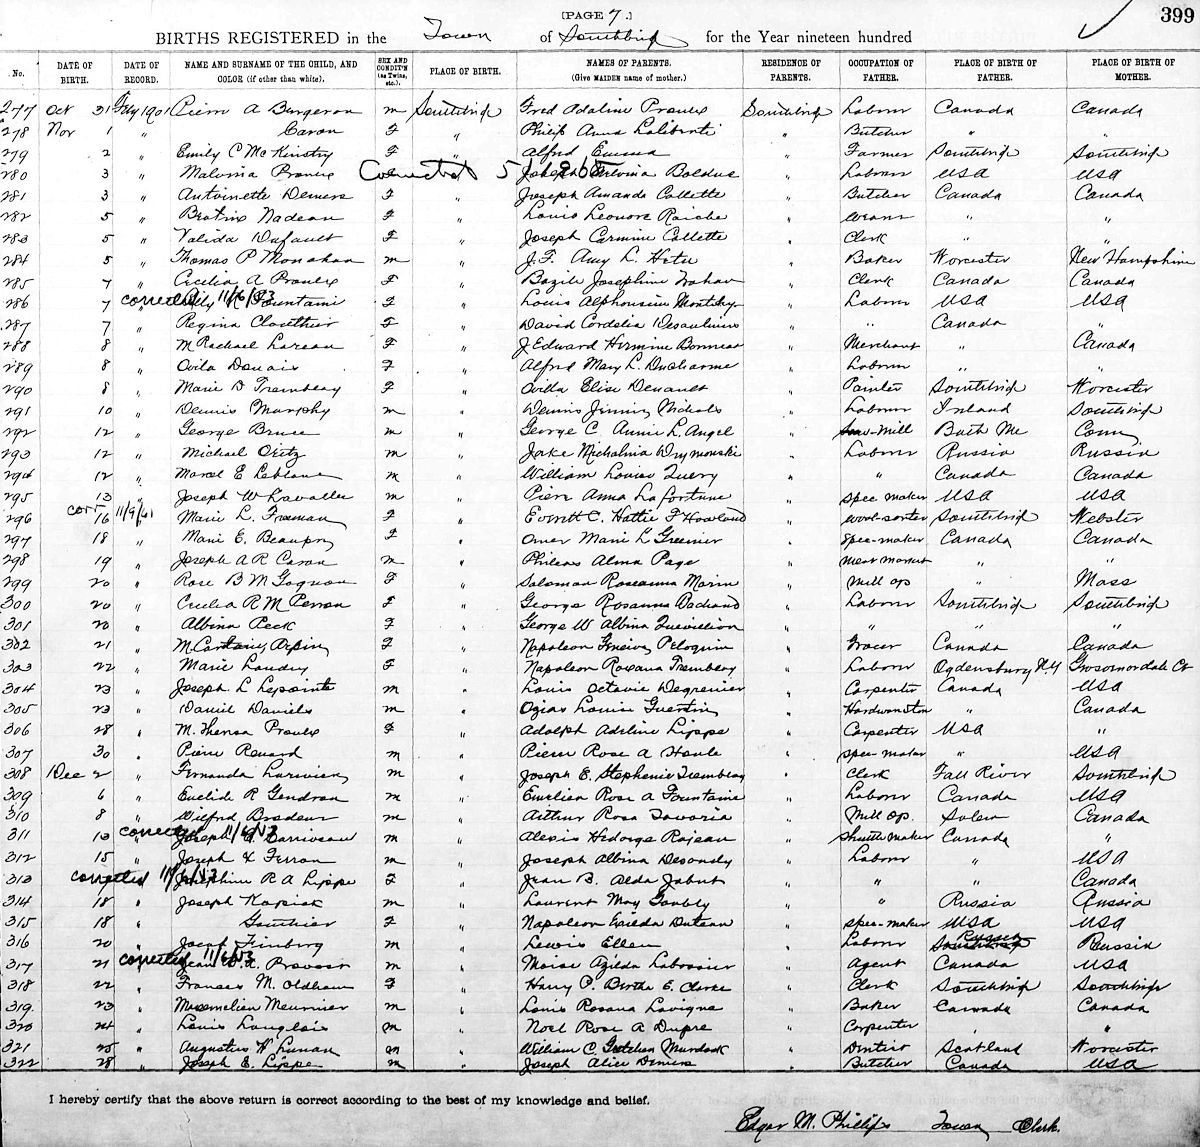 [PAGE 7.]
399
BIRTHS REGISTERED in the Town of Southbridge for the Year nineteen hundred
No. DATE OF BIRTH. DATE OF RECORD. NAME AND SURNAME OF THE CHILD, AND COLOR (if other than white). SEX AND CONDIT'N (as Twins, etc.). PLACE OF BIRTH. NAMES OF PARENTS. (Give MAIDEN name of mother.) RESIDENCE OF PARENTS. OCCUPATION OF FATHER. PLACE OF BIRTH OF FATHER. PLACE OF BIRTH OF MOTHER.
277 Oct 31 Feby 1901 Pierre A Bergeron m Southbridge Fred Adaline Proulx Southbridge Laborer Canada Canada
278 Nov 1 " Caron F " Philip Anna Laliberti " Butcher " "
279 2 " Emily C McKinstry F " Alfred Emma " Farmer Southbridge Southbridge
280 3 " Malvina Proulx Corrected Joseph Malvina Bolduc " Laborer USA USA
281 3 " Antoinette Demers F " Joseph Amanda Collette " Butcher Canada Canada
282 5 " Beatrix Nadeau F " Louis Leonore Raiche " " "
283 5 " Valida Dufault F " Joseph Carmine Collette " Clerk " "
284 5 " Thomas P Monahan m " J. F. Amy L. " Baker Worcester New Hampshire
285 7 " Cecilia A Proulx F " Bazile Josephine " Clerk Canada Canada
286 7 " corrected 11/6/53 Fountain F " Louis Alphonsine " Laborer USA USA
287 7 " Regina Clouthier F " David Cordelia Desaulniers " " Canada "
288 8 " M Rachael Lareau F " J Edward Hermine Bonneau " Merchant " Canada
289 8 " Ovila Denais F " Alfred Mary L. Ducharme " Laborer " "
290 8 " Marie D Tremblay F " Ovida Elise Denault " Painter Southbridge Worcester
291 10 " Dennis Murphy m " Dennis Jinny Nichols " Laborer Ireland Southbridge
292 12 " George Bruce m " George C. Annie L. Angel " Saw-Mill Bath Me Conn
293 12 " Michael m " Jake Michalina " Laborer Russia Russia
294 12 " Marcel E Leblanc m " William Louise " " Canada Canada
295 13 " Joseph W Lavallee m " Pierre Anna Lafortune " spec maker USA USA
296 corr 16 11/9/61 Marie L. Freeman F " Everett C. Hattie F Howland " wool-sorter Southbridge Webster
297 18 " Marie E. Beaupry F " Omer Marie L Grenier " spec-maker Canada Canada
298 19 " Joseph A R Caron m " Phileas Alma Page " meat market " "
299 20 " Rose B M Gagnon F " Salomon Roseanna Morin " mill op " Mass
300 20 " Cecilia R M Perron F " George Rosanna Bachand " Laborer Southbridge Southbridge
301 20 " Albina Peck F " George W Albina " " " "
302 21 " Arpin F " Napoleon Peloquin " Grocer Canada Canada
303 22 " Marie Landry F " Napoleon Roxana Tremblay " Laborer Ogdensburg N.Y Grosvenordale Ct
304 23 " Joseph L Lapointe m " Louis Octavie " Carpenter Canada USA
305 23 " Daniel Daniels m " Ozias Louise Guertin " " Canada
306 28 " M. Theresa Proulx F " Adolph Adeline Lippe " Carpenter USA "
307 30 " Pierre Renard m " Pierre Rose A Houle " spec-maker " USA
308 Dec 2 " Fernanda Lariviere m " Joseph E. Stephanie Tremblay " Clerk Fall River Southbridge
309 6 " Euclide R Gendron m " Emelien Rose A Fountaine " Laborer Canada USA
310 8 " Wilfred Brodeur m " Arthur Rosa Savaria " Mill Op. Salem Canada
311 13 " corrected Joseph Darriveau m " Alexis Rajeau " Shuttle maker Canada "
312 15 " Joseph X Ferron m " Joseph Albina " Laborer " USA
313 corrected Josephine R A Lippe F " Jean B. Alda Jabut " " " Canada
314 18 " Joseph Kapisk m " Laurent May " " Russia Russia
315 18 " Gauthier F " Napoleon Exilda Duteau " spec-maker USA USA
316 20 " Jacob Finberg m " Lewis Ellen " Laborer Southbridge Russia Russia
317 21 " corrected 11/6/53 m " Moise Azilda Labossier " Agent Canada USA
318 22 " Frances M. Oldham F " Harry P. Bertha E. Clarke " Clerk Southbridge Southbridge
319 23 " Maxemelien Meunier m " Louis Rosana Lavigne " Baker Canada Canada
320 24 " Louis Langlois m " Noel Rose A Dupre " Carpenter " "
321 25 " Augustus W Lunan m " William C. Gretchen Murdock " Dentist Scotland Worcester
322 28 " Joseph E. Lippe m " Joseph Alice Demers " Butcher Canada USA
I hereby certify that the above return is correct according to the best of my knowledge and belief.
Edgar M. Phillips Town Clerk.